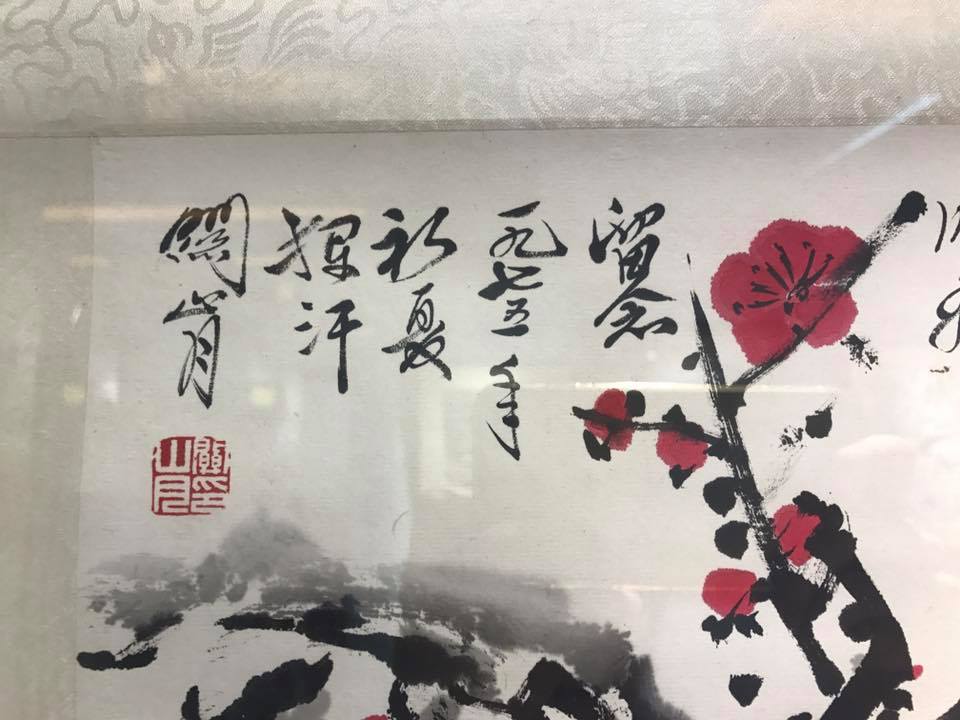 留念
一九七五年
初夏
揮汗
關山月
關山月印